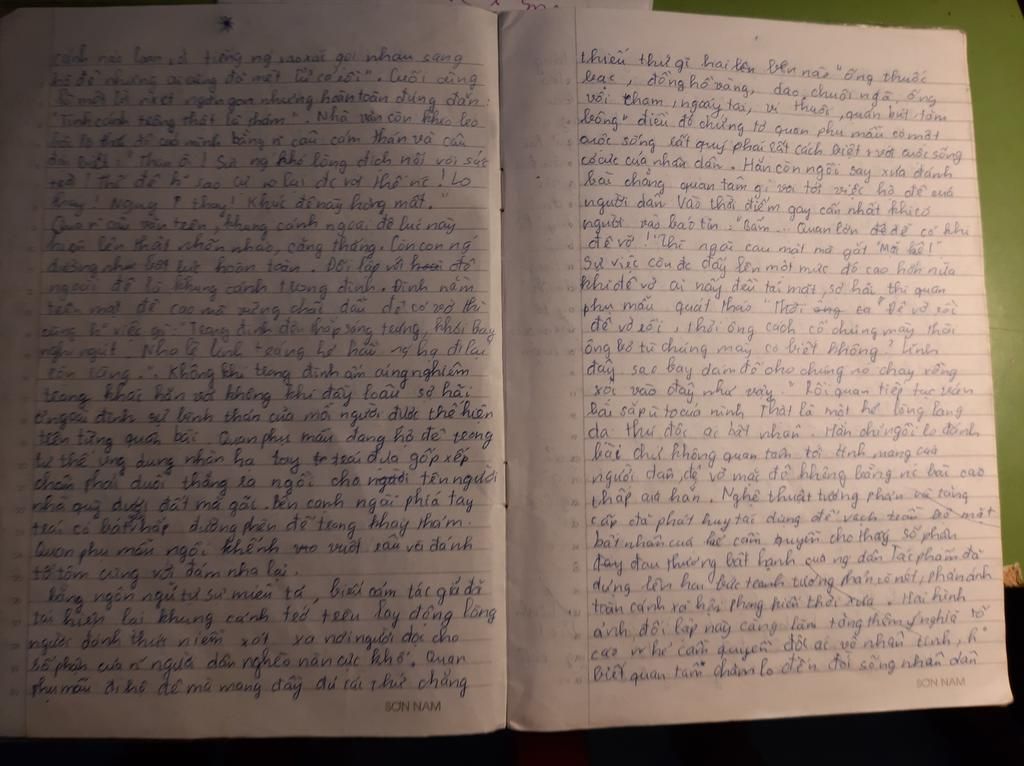 cảnh náo loạn, ở tiếng ng xao xác gọi nhau sang
hộ đê nhưng ai cũng đã mệt lử cả rồi". Cuối cùng
là một lời nx ngắn gọn nhưng hoàn toàn đúng đắn:
"Tình cảnh trông thật là thảm". Nhà văn còn khéo léo
bằng câu cảm thán và câu
"Than ôi! Sức ng khó lòng địch nổi với sức
trời! Thế đê k sao cự lại đc với thế nc! Lo
thay! Nguy thay! Khúc đê này hỏng mất."
Qua câu văn trên, khung cảnh ngoài đê lúc này
hiện lên thật nhốn nháo, căng thẳng. Còn con ng
dường như bất lực hoàn toàn. Đối lập với đó
ngoài đê là khung cảnh trong đình. Đình nằm
trên mặt đê cao mà vững chãi dẫu đê có vỡ thì
cũng k việc gì. "Trong đình đèn thắp sáng trưng, khói bay
nghi ngút. Nha lệ lính tráng hầu hạ đi lại
rộn ràng.". Không khí trong đình ấm cúng nghiêm
trang khác hẳn với không khí đầy loâu sợ hãi
ở ngoài đình sự bình thản của mỗi người được thể hiện
trên từng quân bài. Quan phụ mẫu đang hộ đê trong
tư thế ung dung nhàn hạ tay trái dựa gối xếp
chân phải duỗi thẳng ra ngồi cho người tên người
nhà quỳ dưới đất mà gãi. Bên cạnh ngài phía tay
trái có bát yến hấp đường phèn để trong khay khảm.
Quan phụ mẫu ngồi khểnh vuốt râu và đánh
tổ tôm cùng với đám nha lại.
Bằng ngôn ngữ tự sự miêu tả, biểu cảm tác giả đã
tái hiện lại khung cảnh trớ trêu lay động lòng
người đánh thức niềm xót xa nơi người đọc cho
số phận của n người dân nghèo nàn cực khổ. Quan
phụ mẫu đi hộ đê mà mang đầy đủ các thứ chẳng
thiếu thứ gì hai bên bên nào "ống thuốc
bạc, đồng hồ vàng, dao chuôi ngà, ống
vôi chạm, ngoáy tai, ví thuốc, quản bút tăm
bông" điều đó chứng tỏ quan phụ mẫu có một
cuộc sống rất quý phái rất cách biệt với cuộc sống
cơ cực của nhân dân. Hắn còn ngồi say xưa đánh
bài chẳng quan tâm gì với tới việc hộ đê của
người dân. Vào thời điểm gay cấn nhất khi có
người vào báo tin: "Bẩm... Quan lớn đê có khi
đê vỡ!" Thì ngài cau mặt mà gắt "Mặc kệ!"
Sự việc còn đc đẩy lên một mức độ cao hơn nữa
khi đê vỡ ai nấy đều tái mặt, sợ hãi thì quan
phụ mẫu quát tháo "Đê vỡ rồi
đê vỡ rồi, thời ông cách cổ chúng mày thời
ông bỏ tù chúng mày có biết không? Lính
đâu sao bay dám để cho chúng nó chạy xồng
xộc vào đây như vậy." Rồi quan tiếp tục ván
bài sắp ù to của mình. Thật là một kẻ lòng lang
dạ thú độc ác bất nhân. Hắn chỉ ngồi lo đánh
bài chứ không quan tâm tới tính mạng của
người dân, đê vỡ mặc đê không bằng nc bài cao
thấp của hắn. Nghệ thuật tương phản và tăng
cấp đã phát huy tác dụng để vạch trần bộ mặt
bất nhân của kẻ cầm quyền cho thấy số phận
đầy đau thương bất hạnh của ng dân. Tác phẩm đã
dựng lên hai bức tranh tương phản rõ nét, phản ánh
toàn cảnh xã hội phong kiến thời xưa. Hai hình
ảnh đối lập này càng làm tăng thêm ý nghĩa tố
cáo về kẻ cầm quyền độc ác vô nhân tính, k
biết quan tâm chăm lo đến đời sống nhân dân
SƠN NAM
SƠN NAM